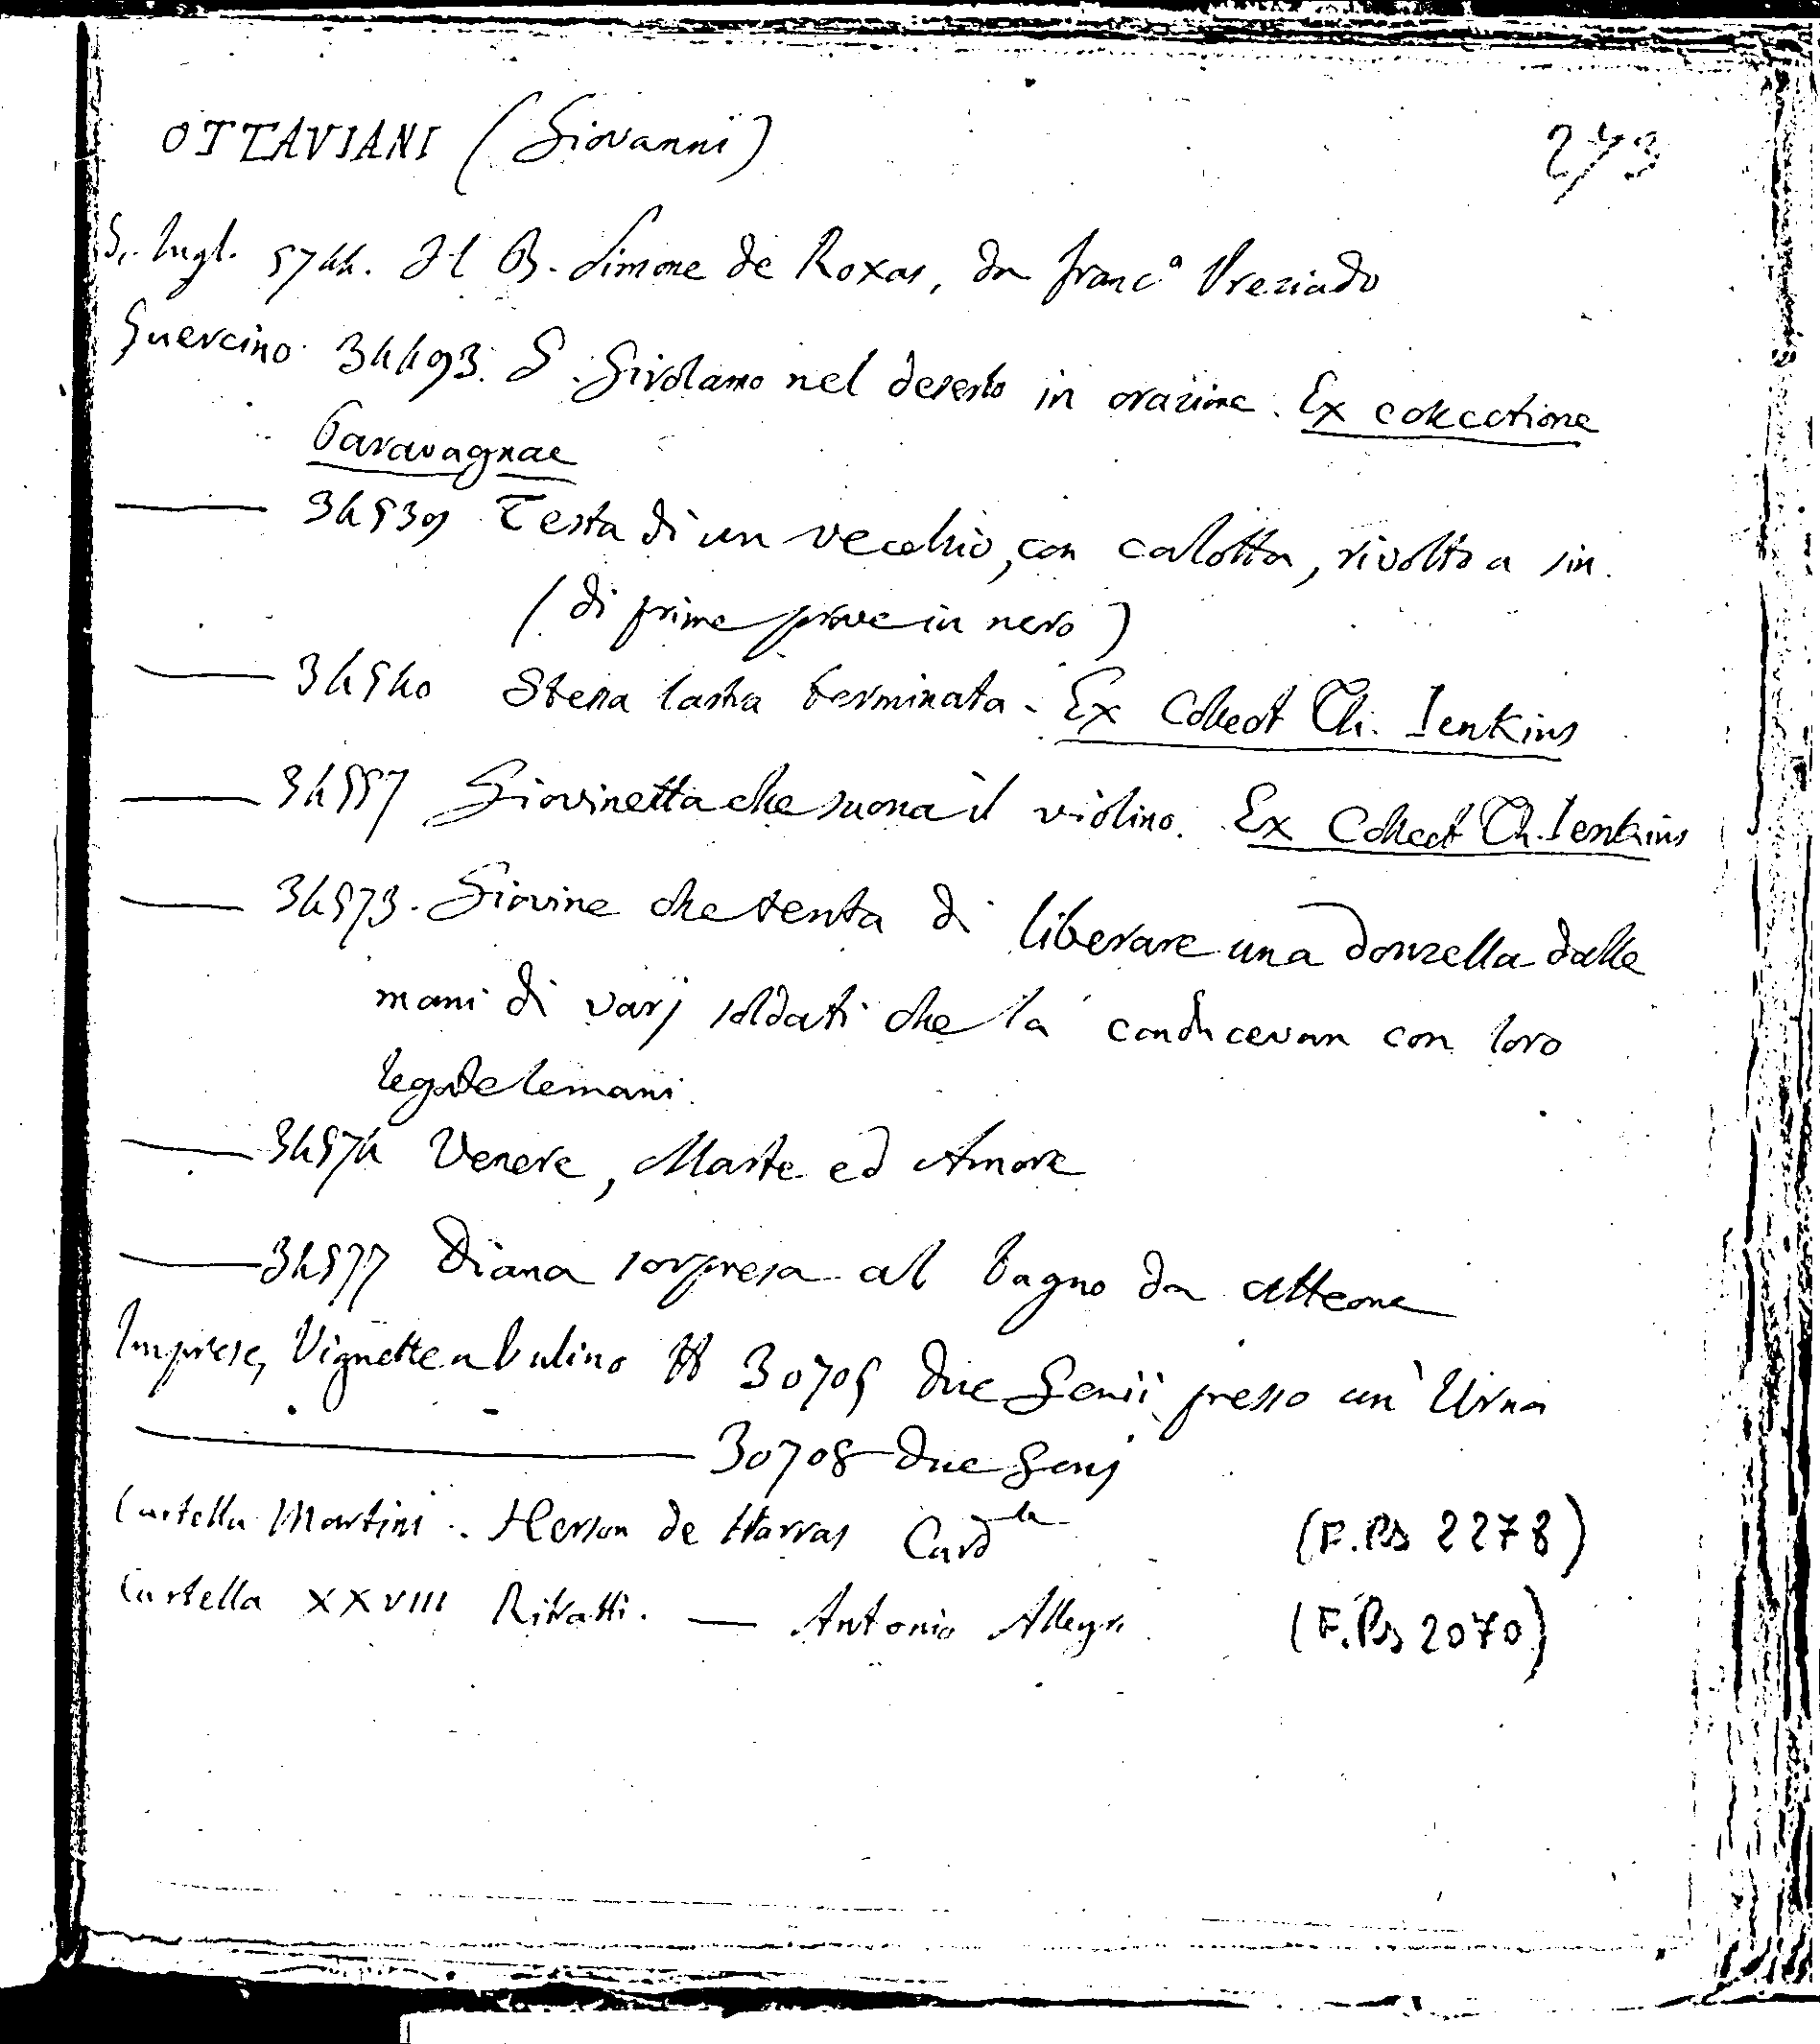 OTTAVIANI (Giovanni) 273
S. Lugl. 5744. Il B. Simone de Roxas, da Franc.º Preziado
Guercino 34493. S. Girolamo nel deserto in orazione. Ex collectione
Caravagnae
—— 34539 Testa di un vecchio, con calotta, rivolto a sin.
(di prime prove in nero)
—— 34540 Stessa lastra terminata - Ex Collect Th. Ienkins
—— 34557 Giovinetta che suona il violino. Ex Collect Th. Ienkins
—— 34573. Giovine che tenta di liberare una donzella dalle
mani di varj soldati che la conducevan con loro
legate le mani.
—— 34574 Venere, Marte ed Amore
—— 34577 Diana sorpresa al bagno da Atteone
Imprese, Vignette a bulino H 30705 due Genii presso un' Urna
—— 30708 due Genj
Cartella Martini. Herson de Harras Card
Cartella XXVIII Ritratti. — Antonio Allegri
(F.Pss 2278)
(F.Pss 2070)